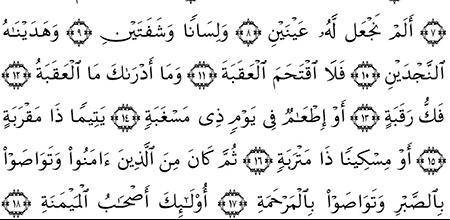 ﴿٧﴾ أَلَمْ نَجْعَل لَّهُۥ عَيْنَيْنِ ﴿٨﴾ وَلِسَانًا وَشَفَتَيْنِ ﴿٩﴾ وَهَدَيْنَـٰهُ
ٱلنَّجْدَيْنِ ﴿١٠﴾ فَلَا ٱقْتَحَمَ ٱلْعَقَبَةَ ﴿١١﴾ وَمَآ أَدْرَىٰكَ مَا ٱلْعَقَبَةُ ﴿١٢﴾
فَكُّ رَقَبَةٍ ﴿١٣﴾ أَوْ إِطْعَـٰمٌ فِى يَوْمٍ ذِى مَسْغَبَةٍ ﴿١٤﴾ يَتِيمًا ذَا مَقْرَبَةٍ
﴿١٥﴾ أَوْ مِسْكِينًا ذَا مَتْرَبَةٍ ﴿١٦﴾ ثُمَّ كَانَ مِنَ ٱلَّذِينَ ءَامَنُوا۟ وَتَوَاصَوْا۟
بِٱلصَّبْرِ وَتَوَاصَوْا۟ بِٱلْمَرْحَمَةِ ﴿١٧﴾ أُو۟لَـٰٓئِكَ أَصْحَـٰبُ ٱلْمَيْمَنَةِ ﴿١٨﴾